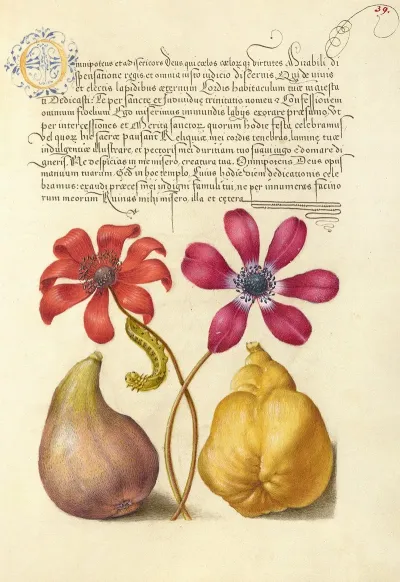 39.
Omnipotens et misericors Deus qui coelos coelorum qui virtutes Mirabili di
spensatione regis et omnia iusto iudicio discernis, Qui de vivis
et electis lapidibus aeternum Tordis habitaculum tuae maiesta
ti Dedicasti: Te per sanctae et Individuae trinitatis nomen & Confessionem
omnium fidelium Ego miserimus immundis labijs exorare praesumo, Vt
per intercessiones et Merita Sanctorum quorum hodie festa celebramus
Vel quorum hic sacrae pausant Reliquiae, mei cordis tenebras, lumine tuae
indulgentiae illustrare, et pectoris mei duritiam tuo suavi iugo edomare di
gneris. Ne despicias in me misero, creatura tua. Omnipotens Deus opus
manuum tuarum. Sed in hoc templo, Cuius hodie diem dedicationis cele
bramus: exaudi preces mei indigni famuli tui, ne per innumeras facino
rum meorum Ruinas mihi misero. illa et cetera